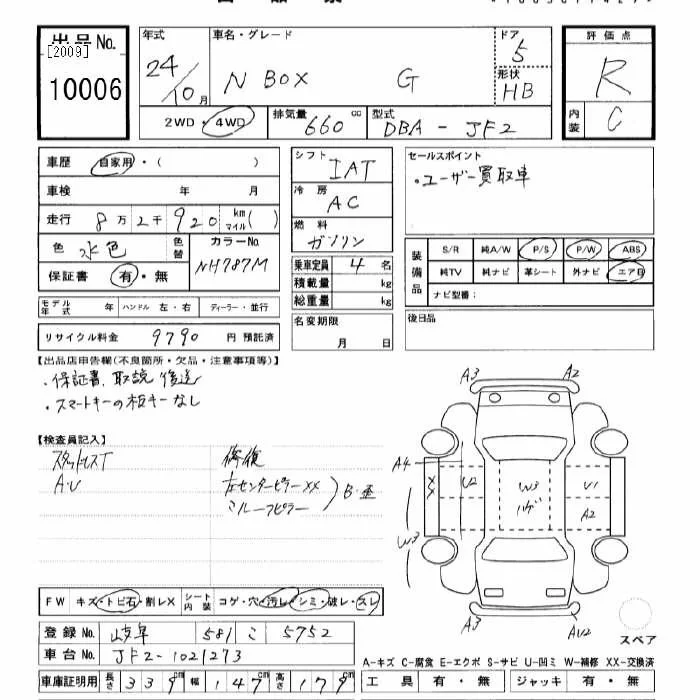 出品No.
[2009]
10006
年式
24/10月
車名・グレード
N BOX G
ドア
5
形状
HB
評価点
R
内装
C
2WD・4WD
排気量 660 cc
型式 DBA-JF2
車歴 自家用・( )
車検 年 月
走行 8万2千920 km マイル( )
色 水色 色替
カラーNo. NH787M
保証書 有・無
シフト IAT
冷房 AC
燃料 ガソリン
乗車定員 4名
積載量 kg
総重量 kg
セールスポイント
・ユーザー買取車
装備品
S/R 純A/W P/S P/W ABS
純TV 純ナビ 革シート 外ナビ エアB
ナビ型番:
モデル年式 年 ハンドル 左・右 ディーラー・並行
リサイクル料金 9790 円 預託済
名変期限
月 日
後日品
【出品店申告欄(不良箇所・欠品・注意事項等)】
・保証書、取説 後送
・スマートキーの板キーなし
【検査員記入】
スタッドレスT
A・U
修復
左センターピラーXX
ルーフピラー
A3 A2
A4 XX U2 W3 ハゲ U1
A2
W3
A3 AU2
スペア
FW キズ・トビ石・割レX シート内装 コゲ・穴・汚レ・シミ・破レ・スレ
登録No. 岐阜 581 こ 5752
車台No. JF2-1021273
車庫証明用 長さ 339cm 幅 147cm 高さ 179cm
A-キズ C-腐食 E-エクボ S-サビ U-凹ミ W-補修 XX-交換済
工具 有・無 ジャッキ 有・無